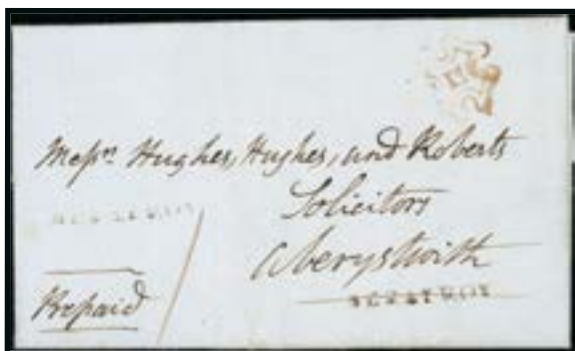 Messrs Hughes, Hughes, and Roberts
Solicitors
Aberystwith
Prepaid